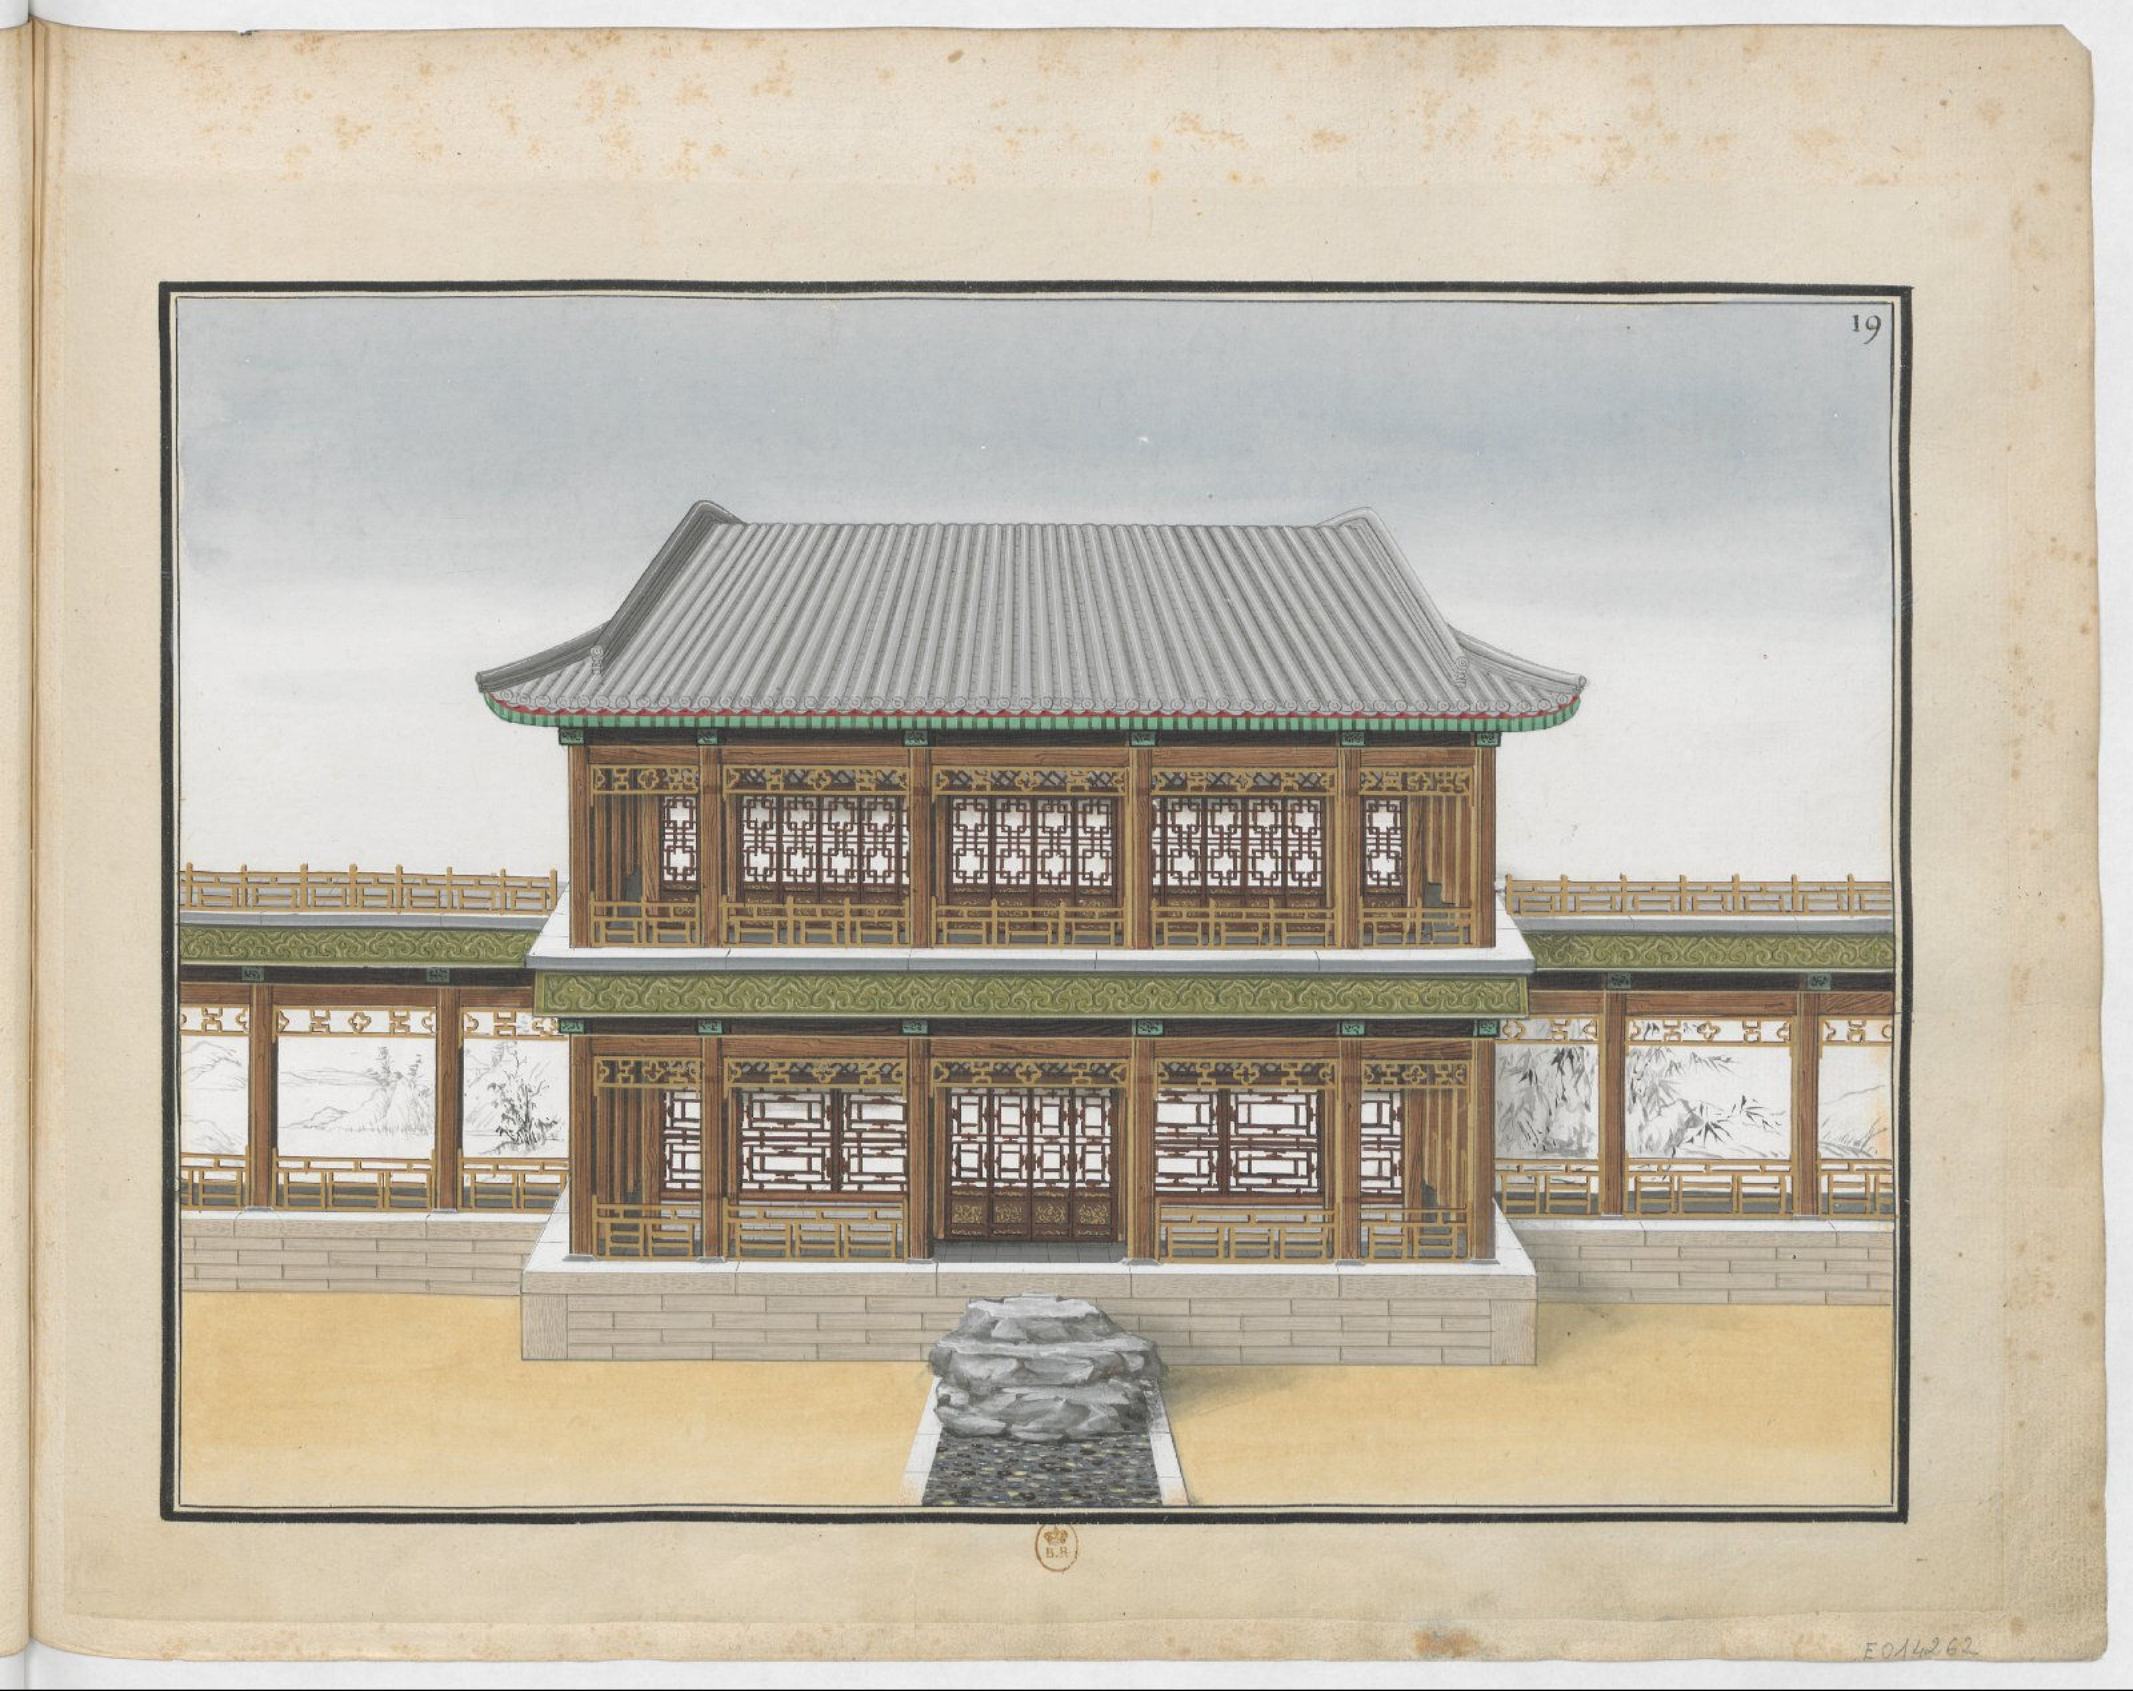 19
B.R
E014262